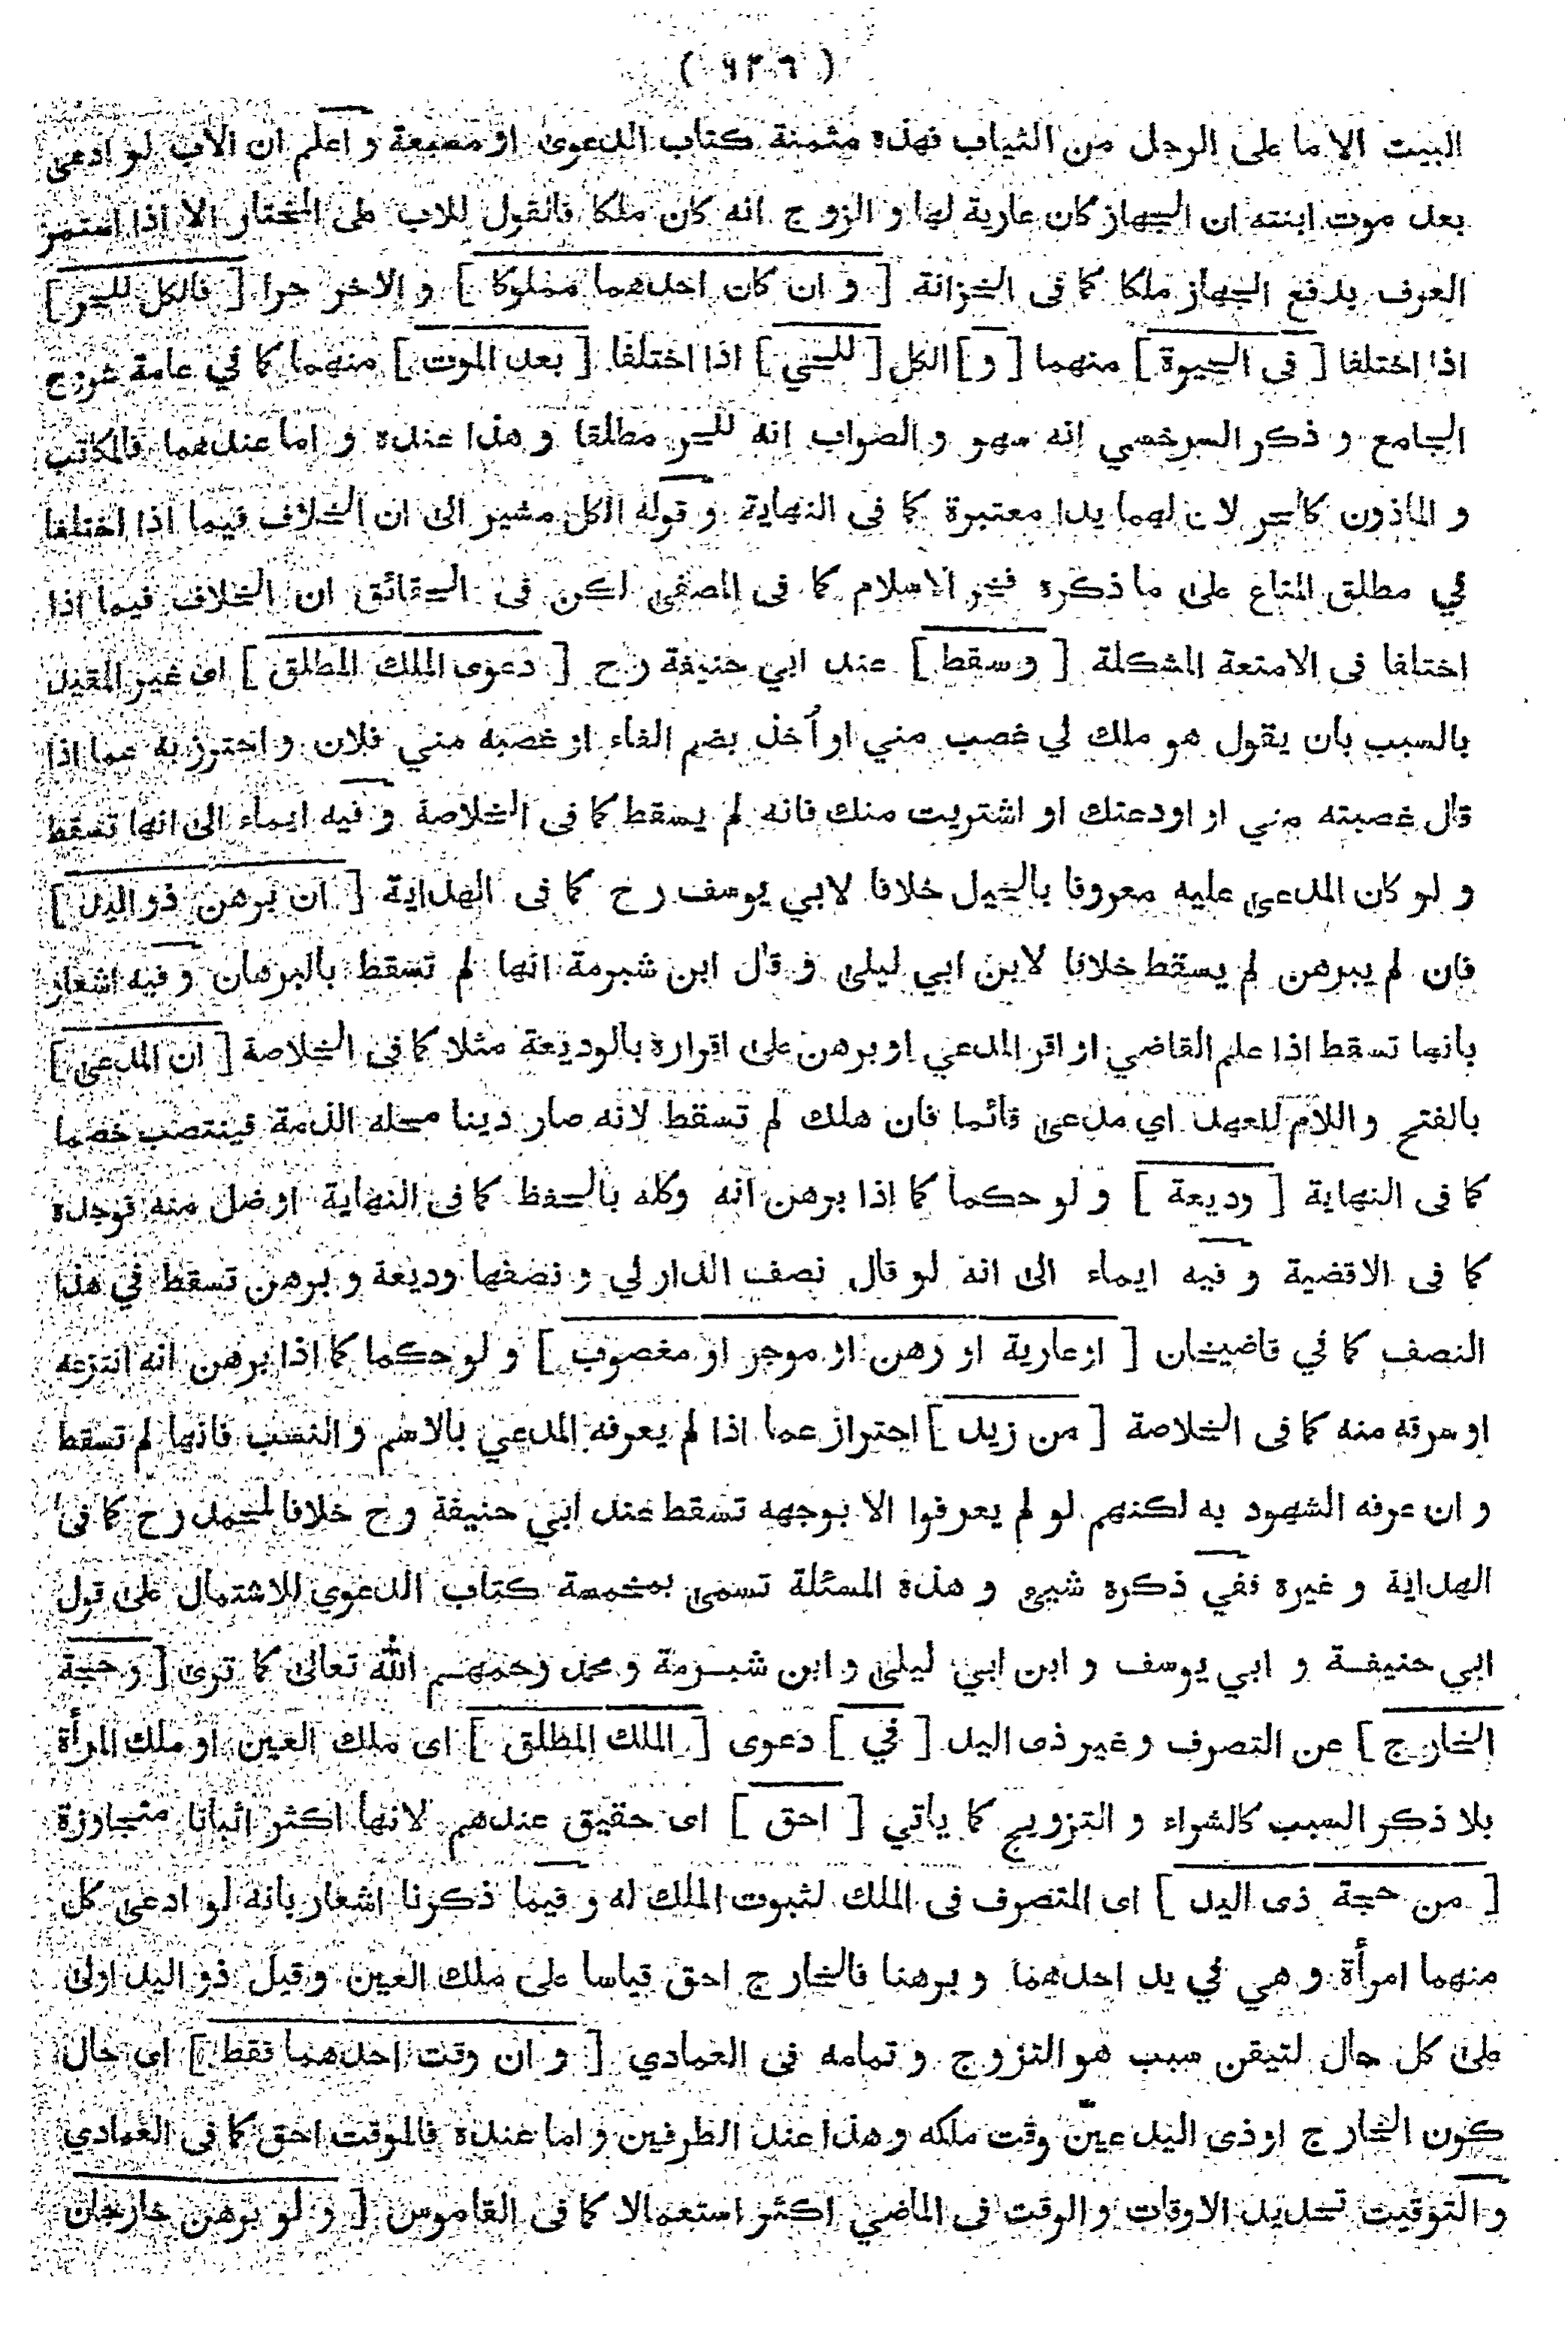 ( ٦٣٦ )
البيت الا ما على الرجل من الثياب فهذه مثمنة كتاب الدعوى او مسبعة و اعلم ان الاب لو ادعى
بعد موت ابنته ان الجهاز كان عارية لها و الزوج انه كان ملكا فالقول للاب على المختار الا اذا استمر
العرف بدفع الجهاز ملكا كما فى الخزانة [ و ان كان احدهما مملوكا ] و الاخر حرا [ فالكل للحر ]
اذا اختلفا [ فى الحيوة ] منهما [ و ] الكل [ للحي ] اذا اختلفا [ بعد الموت ] منهما كما في عامة شروح
الجامع و ذكر السرخسي انه سهو و الصواب انه للحر مطلقا و هذا عنده و اما عندهما فالمكاتب
و الماذون كالحر لان لهما يدا معتبرة كما فى النهاية و قوله الكل مشير الى ان الخلاف فيما اذا اختلفا
في مطلق المتاع على ما ذكره فخر الاسلام كما فى المصفى لكن فى الحقائق ان الخلاف فيما اذا
اختلفا فى الامتعة المشكلة [ و سقط ] عند ابي حنيفة رح [ دعوى الملك المطلق ] اى غير المقيد
بالسبب بان يقول هو ملك لي غصب مني او أخذ بضم الفاء او غصبه مني فلان و احترز به عما اذا
قال غصبته مني او اودعتك او اشتريت منك فانه لم يسقط كما فى الخلاصة و فيه ايماء الى انها تسقط
و لو كان المدعى عليه معروفا بالحيل خلافا لابي يوسف رح كما فى الهداية [ ان برهن ذو اليد ]
فان لم يبرهن لم يسقط خلافا لابن ابي ليلى و قال ابن شبرمة انها لم تسقط بالبرهان و فيه اشعار
بانها تسقط اذا علم القاضي او اقر المدعي او برهن على اقراره بالوديعة مثلا كما فى الخلاصة [ ان المدعى ]
بالفتح و اللام للعهد اي مدعى قائما فان هلك لم تسقط لانه صار دينا محله الذمة فينتصب خصما
كما فى النهاية [ وديعة ] و لو حكما كما اذا برهن انه وكله بالحفظ كما فى النهاية او ضل منه فوجده
كما فى الاقضية و فيه ايماء الى انه لو قال نصف الدار لي و نصفها وديعة و برهن تسقط في هذا
النصف كما في قاضيخان [ او عارية او رهن او موجر او مغصوب ] و لو حكما كما اذا برهن انه انتزعه
او سرقه منه كما فى الخلاصة [ من زيد ] احتراز عما اذا لم يعرفه المدعي بالاسم و النسب فانها لم تسقط
و ان عرفه الشهود به لكنهم لو لم يعرفوا الا بوجهه تسقط عند ابي حنيفة رح خلافا لمحمد رح كما فى
الهداية و غيره ففي ذكره شيئ و هذه المسئلة تسمى بمخمسة كتاب الدعوي للاشتمال على قول
ابي حنيفة و ابي يوسف و ابن ابي ليلى و ابن شبرمة و محمد رحمهم الله تعالى كما ترى [ و حجة
الخارج ] عن التصرف و غير ذى اليد [ في ] دعوى [ الملك المطلق ] اى ملك العين او ملك المرأة
بلا ذكر السبب كالشراء و التزويج كما ياتي [ احق ] اى حقيق عندهم لانها اكثر اثباتا متجاوزة
[ من حجة ذى اليد ] اى المتصرف فى الملك لثبوت الملك له و فيما ذكرنا اشعار بانه لو ادعى كل
منهما امرأة و هي في يد احدهما و برهنا فالخارج احق قياسا على ملك العين و قيل ذو اليد اولى
على كل حال لتيقن سبب هو التزوج و تمامه فى العمادي [ و ان وقت احدهما فقط ] اى حال
كون الخارج او ذى اليد عيّن وقت ملكه و هذا عند الطرفين و اما عنده فالموقت احق كما فى العمادي
و التوقيت تحديد الاوقات و الوقت فى الماضي اكثر استعمالا كما فى القاموس [ و لو برهن خارجان